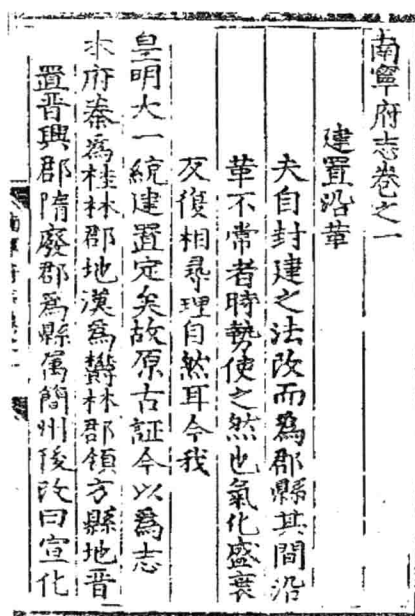 南寧府志卷之一
建置沿革
夫自封建之法改而為郡縣其間沿
革不常者時勢使之然也氣化盛衰
反復相尋理自然耳今我
皇明大一統建置定矣故原古証今以為志
本府秦為桂林郡地漢為欝林郡領方縣地晋
置晋興郡隋廢郡為縣属簡州後改曰宣化